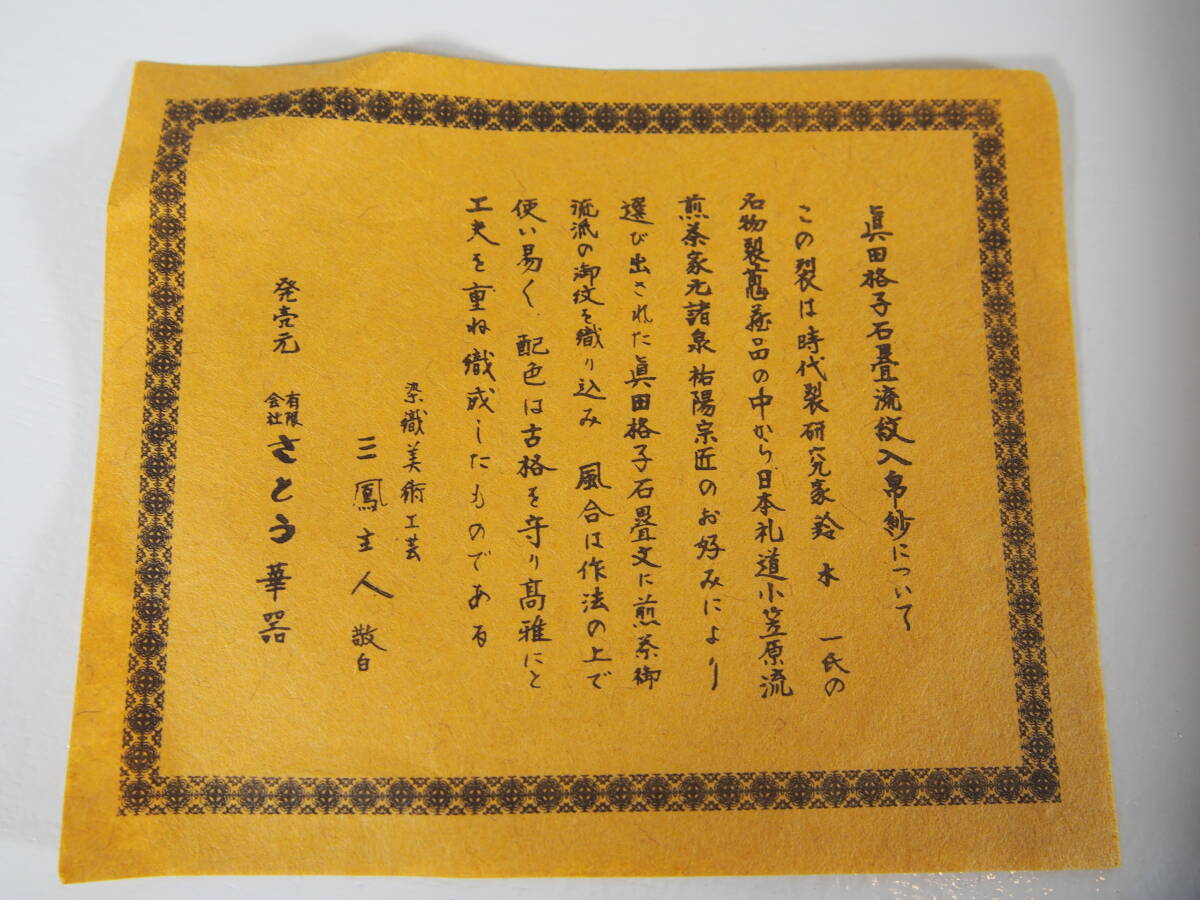 眞田格子石畳流紋入帛紗について
この裂は時代裂研究家鈴木 一氏の
名物裂蒐蔵品の中から日本礼道小笠原流
煎茶家元諸泉祐陽宗匠のお好みにより
選び出された眞田格子石畳文に煎茶御
流派の御紋を織り込み 風合は作法の上で
使い易く 配色は古格を守り高雅にと
工夫を重ね織成したものである
染織美術工芸
三鳳主人 敬白
発売元 有限会社 さとう華器